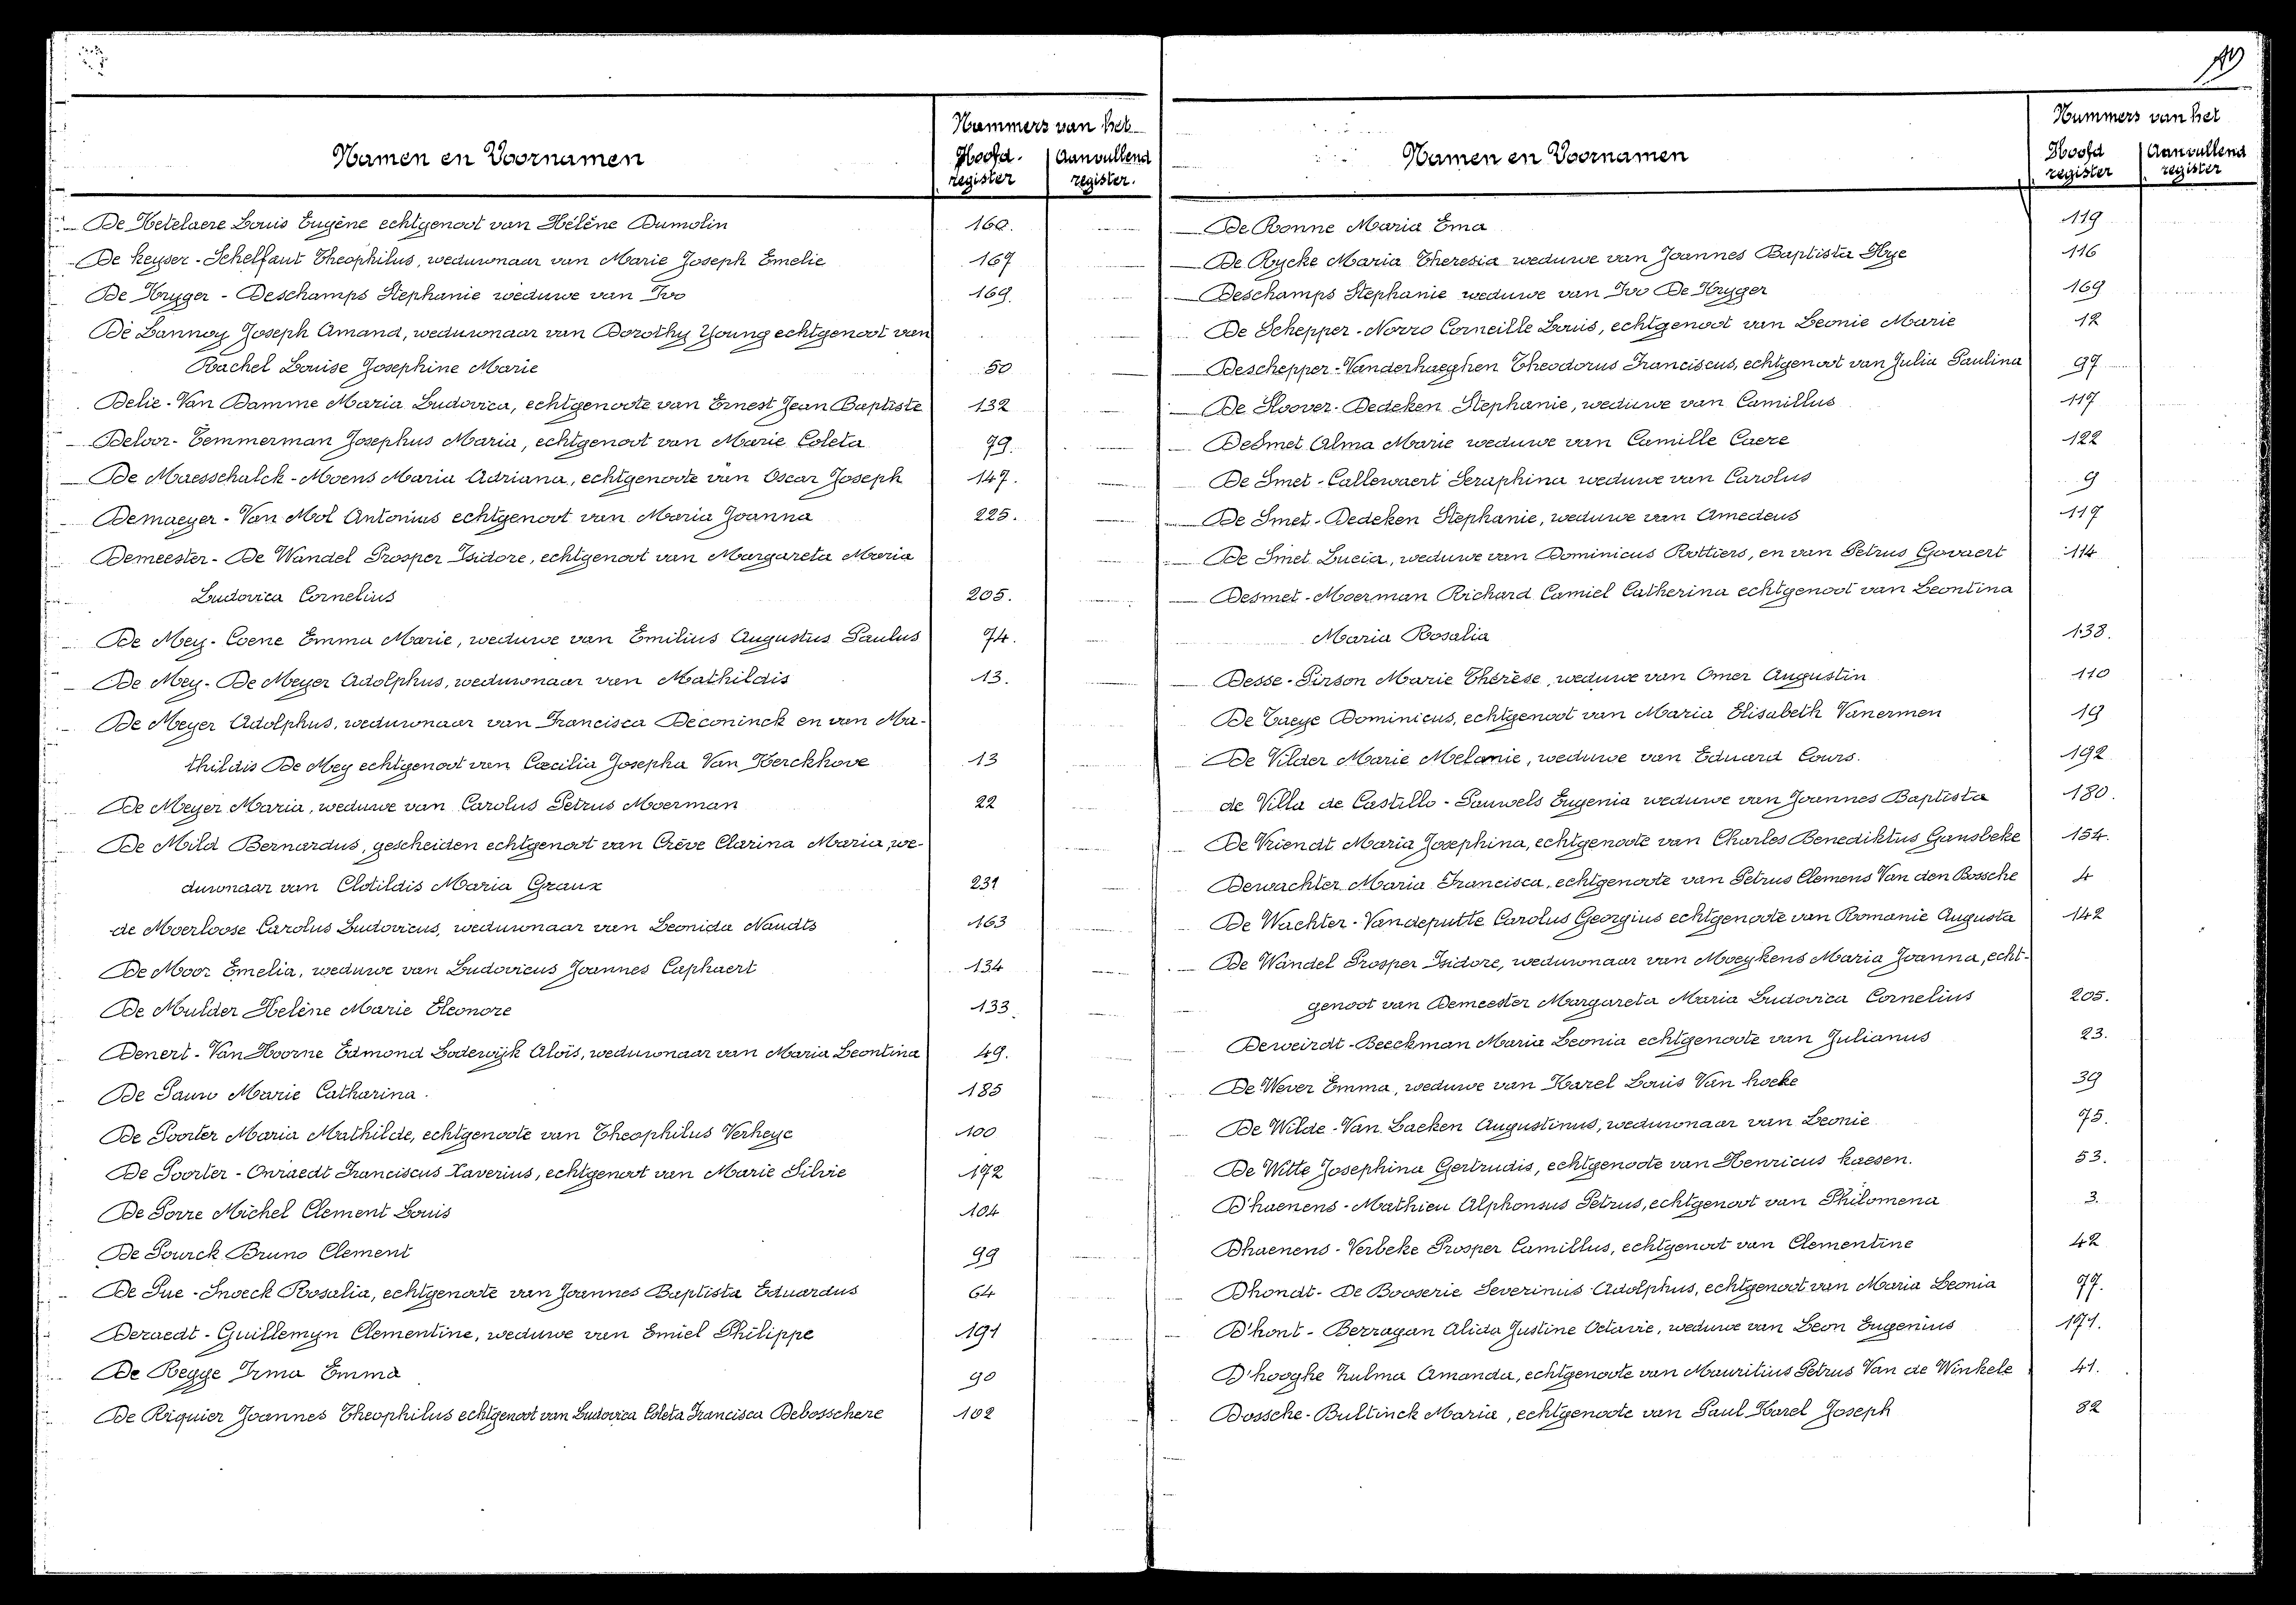 Namen en Voornamen
Nummers van het
Hoofd-register
Aanvullend register.
De Ketelaere Louis Eugène echtgenoot van Hélène Dumolin 160.
De Keyser - Schelfaut Theophilus, weduwnaar van Marie Joseph Emelie 167
De Kryger - Deschamps Stephanie weduwe van Ivo 169.
De Lannoy Joseph Amand, weduwnaar van Dorothy Young echtgenoot van
Rachel Louise Josephine Marie 50
Delie - Van Damme Maria Ludovica, echtgenoote van Ernest Jean Baptiste 132
Deloor - Temmerman Josephus Maria, echtgenoot van Marie Coleta 79.
De Maesschalck - Moens Maria Adriana, echtgenoote van Oscar Joseph 147.
Demaeyer - Van Mol Antonius echtgenoot van Maria Joanna 225.
Demeester - De Wandel Prosper Isidore, echtgenoot van Margareta Maria
Ludovica Cornelius 205.
De Mey - Coene Emma Marie, weduwe van Emilius Augustus Paulus 74.
De Mey - De Meyer Adolphus, weduwnaar van Mathildis 13.
De Meyer Adolphus, weduwnaar van Francisca Deconinck en van Ma-
thildis De Mey echtgenoot van Cæcilia Josepha Van Kerckhove 13
De Meyer Maria, weduwe van Carolus Petrus Moerman 22
De Mild Bernardus, gescheiden echtgenoot van Crève Clarina Maria, we-
duwnaar van Clotildis Maria Graux 231
de Moerloose Carolus Ludovicus, weduwnaar van Leonida Naudts 163
De Moor Emelia, weduwe van Ludovicus Joannes Caphaert 134
De Mulder Helène Marie Eleonore 133.
Denert - Van Hoorne Edmond Lodewijk Aloïs, weduwnaar van Maria Leontina 49.
De Pauw Marie Catharina. 185
De Poorter Maria Mathilde, echtgenoote van Theophilus Verheye 100
De Poorter - Onraedt Franciscus Xaverius, echtgenoot van Marie Silvie 172
De Porre Michel Clement Louis 104
De Pourck Bruno Clement 99
De Pue - Snoeck Rosalia, echtgenoote van Joannes Baptista Eduardus 64
Deraedt - Guillemyn Clementine, weduwe van Emiel Philippe 191
De Regge Irma Emma 90
De Riquier Joannes Theophilus echtgenoot van Ludovica Coleta Francisca Debosschere 102
Namen en Voornamen
Nummers van het
Hoofd register
Aanvullend register
De Ronne Maria Ema 119
De Rycke Maria Theresia weduwe van Joannes Baptista Hye 116
Deschamps Stephanie weduwe van Ivo De Kryger 169
De Schepper - Norro Corneille Louis, echtgenoot van Leonie Marie 12
Deschepper - Vanderhaeghen Theodorus Franciscus, echtgenoot van Julia Paulina 97
De Sloover - Dedeken Stephanie, weduwe van Camillus 117
De Smet Alma Marie weduwe van Camille Caere 122
De Smet - Callewaert Seraphina weduwe van Carolus 9
De Smet - Dedeken Stephanie, weduwe van Amedeus 117
De Smet Lucia, weduwe van Dominicus Rottiers, en van Petrus Govaert 114
Desmet - Moerman Richard Camiel Catherina echtgenoot van Leontina
Maria Rosalia 138.
Desse - Pirson Marie Thérèse, weduwe van Omer Augustin 110
De Taeye Dominicus, echtgenoot van Maria Elisabeth Vanermen 19
De Vilder Marie Melanie, weduwe van Eduard Cours. 192
de Villa de Castillo - Pauwels Eugenia weduwe van Joannes Baptista 180.
De Vriendt Maria Josephina, echtgenoote van Charles Benediktus Gansbeke 154.
Dewachter Maria Francisca, echtgenoote van Petrus Clemens Van den Bossche 4
De Wachter - Vandeputte Carolus Georgius echtgenoote van Romanie Augusta 142
De Wandel Prosper Isidore, weduwnaar van Moeykens Maria Joanna, echt-
genoot van Demeester Margareta Maria Ludovica Cornelius 205.
Deweirdt - Beeckman Maria Leonia echtgenoote van Julianus 23.
De Wever Emma, weduwe van Karel Louis Van hoeke 39
De Wilde - Van Laeken Augustinus, weduwnaar van Leonie 75.
De Witte Josephina Gertrudis, echtgenoote van Henricus Kaesen. 53.
D'haenens - Mathieu Alphonsus Petrus, echtgenoot van Philomena 3.
Dhaenens - Verbeke Prosper Camillus, echtgenoot van Clementine 42
Dhondt - De Booserie Severinus Adolphus, echtgenoot van Maria Leonia 77.
D'hont - Berragan Alida Justine Octavie, weduwe van Leon Eugenius 171.
D'hooghe Zulma Amanda, echtgenoote van Mauritius Petrus Van de Winkele 41.
Dossche - Bultinck Maria, echtgenoote van Paul Karel Joseph 82